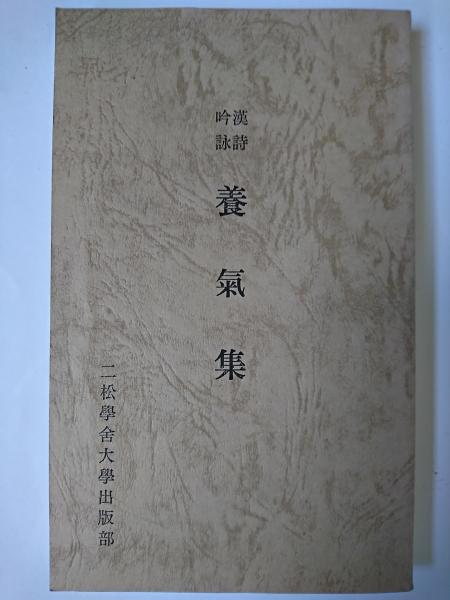 漢詩
吟詠
養氣集
二松學舍大學出版部